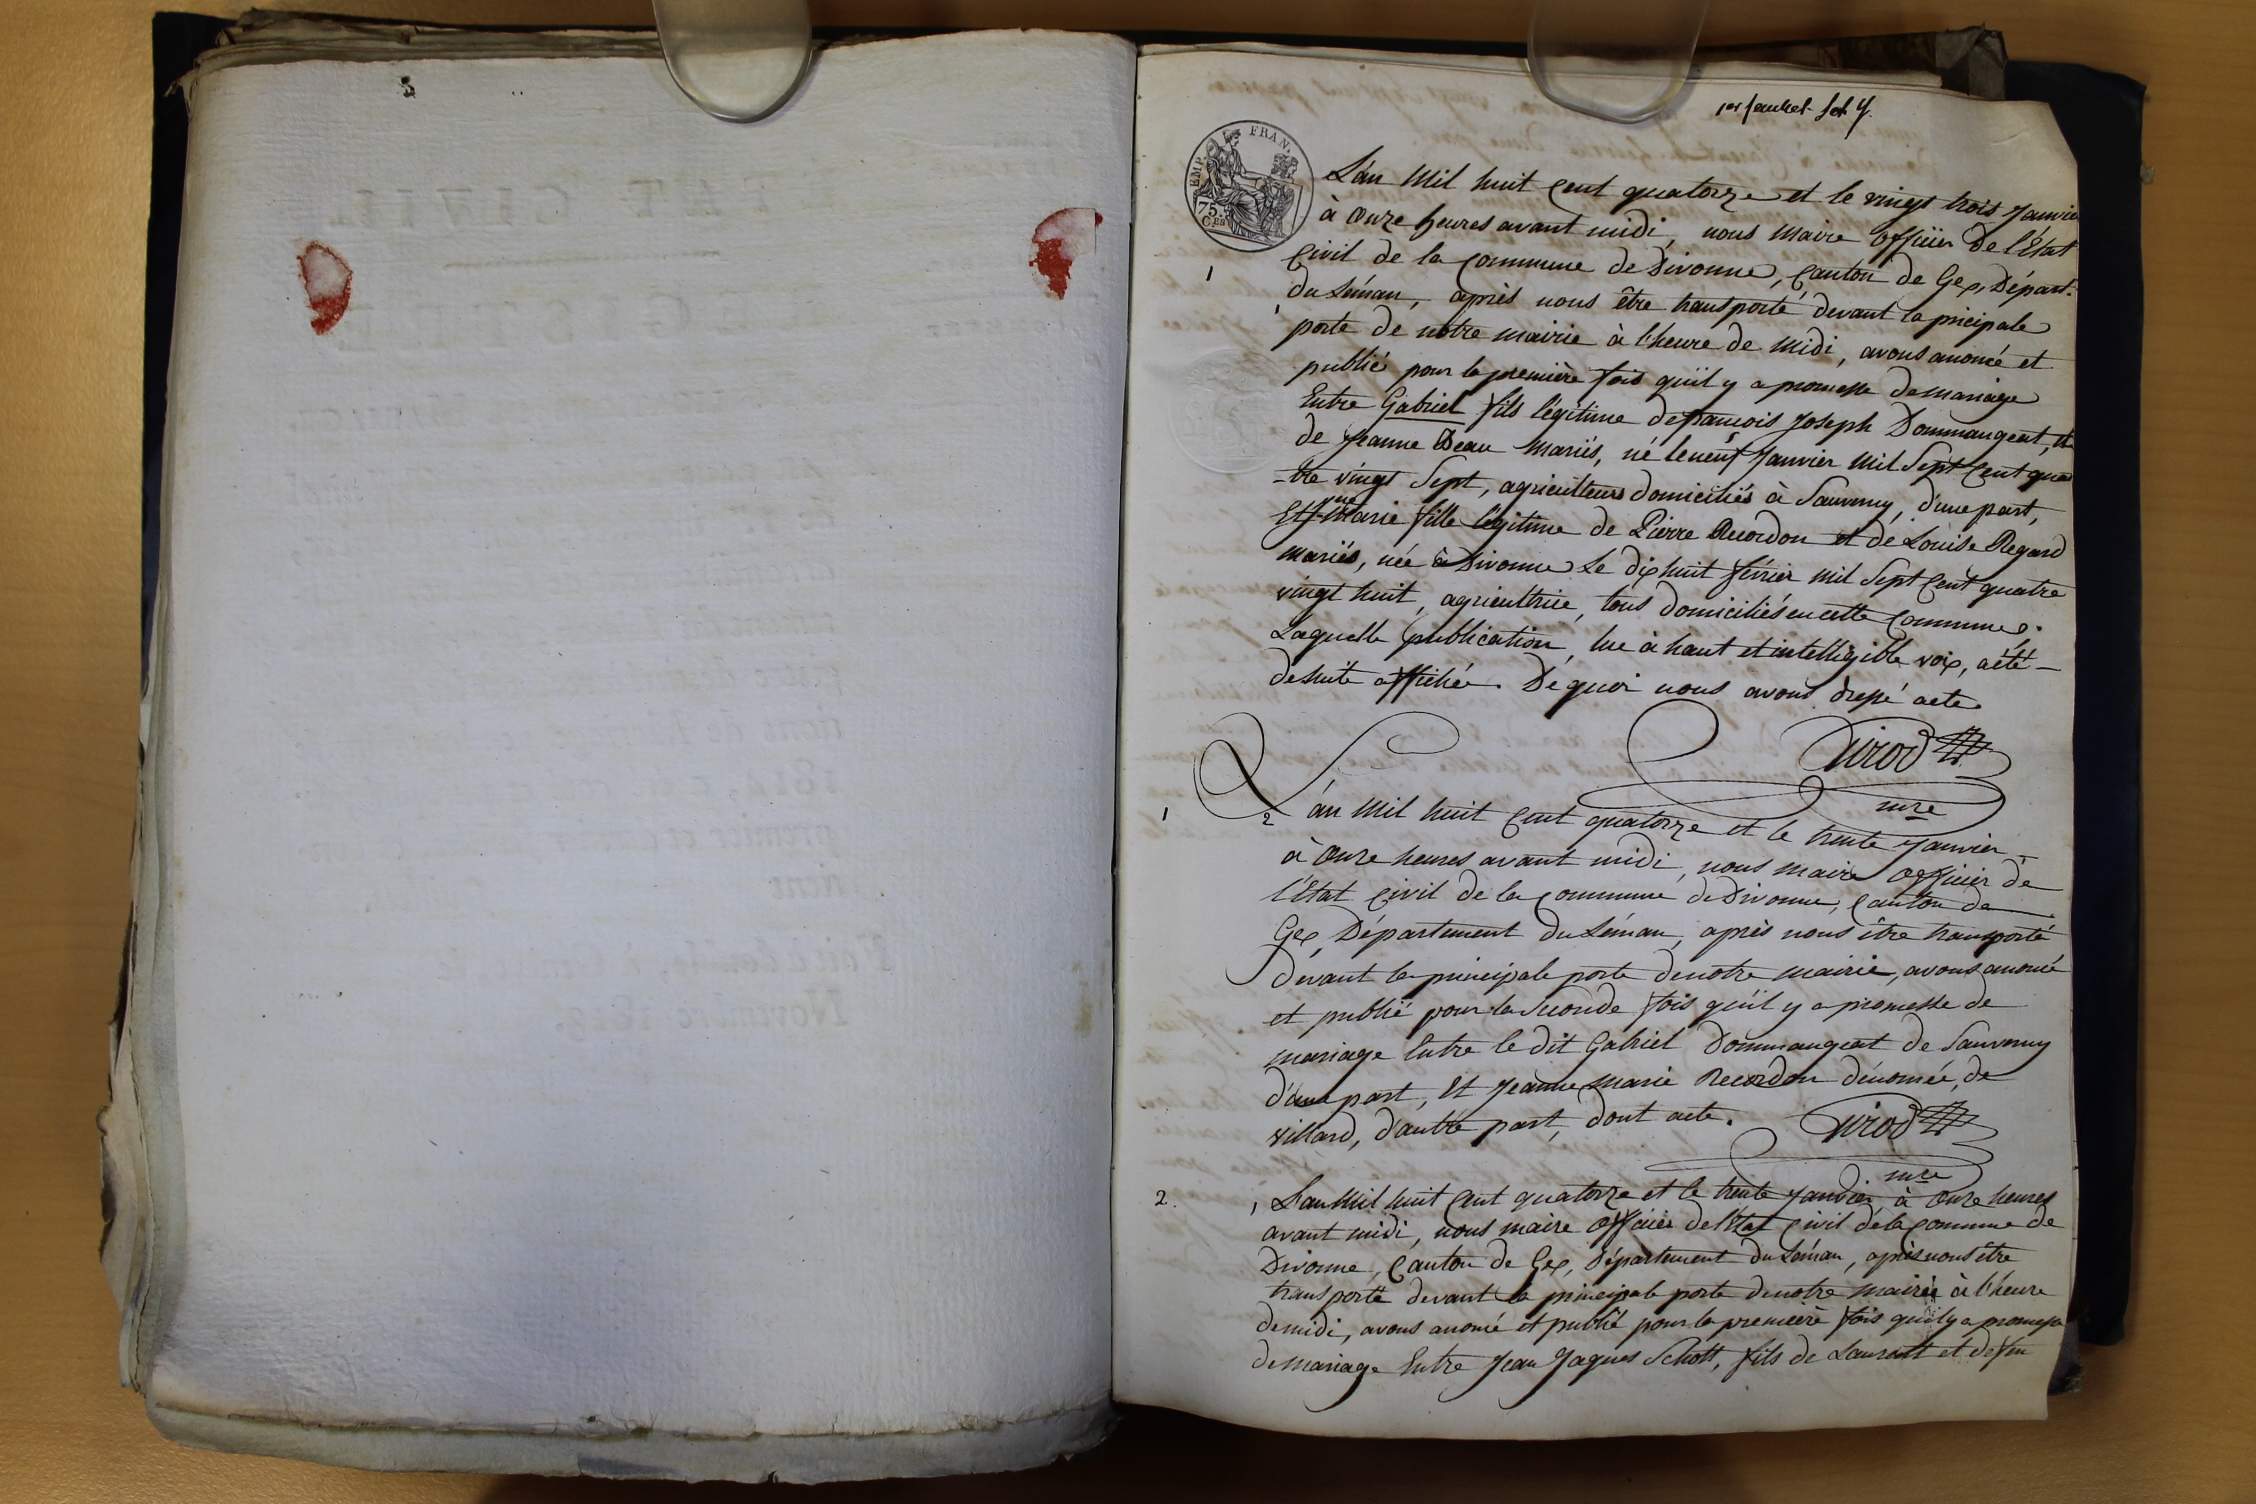 1er feuillet
EMP. FRAN.
75. Ces
L'an Mil huit Cent quatorze et le vingt trois Janvier
à Onze heures avant midi, nous Maire Officier de l'État
1
Civil de la Commune de Divonne, Canton de Gex, Départ.
du Léman, après nous être transporté devant la pricipale
porte de notre mairie à l'heure de Midi, avons anoncé et
publié pour la première fois quil y a promesse de mariage
Entre Gabriel fils légitime de françois Joseph Dommangeat, et
de Jeanne Beau Mariés, né le neuf Janvier Mil Sept Cent qua
-tre vingt Sept, agriculteurs domiciliés à Sauverny, d'une part,
Et Jne Marie fille légitime de Pierre Recordon et de Louise Regard
mariés, née à Divonne le dix huit février Mil Sept Cent quatre
vingt huit, agricultrice, tous domiciliés en cette Commune.
Laquelle publication, lue à haut et intelligible voix, a été
de suite affichée. De quoi nous avons drepé acte
Girod
mre
1
2
L'an Mil huit Cent quatorze et le trente Janvier
à Onze heures avant midi, nous Maire Officier de
l'État Civil de la Commune de Divonne, Canton de
Gex, Département du Léman, après nous être transporté
devant la principale porte de notre mairie, avons anoncé
et publié pour la Seconde fois quil y a promesse de
mariage Entre le dit Gabriel Dommangeat de Sauverny
d'une part, Et Jeanne Marie Recordon dénomée, de
Villard, d'autre part, dont acte.
Girod
mre
2. 1 L'an Mil huit Cent quatorze et le trente Janvier à Onze heures
avant midi, nous maire Officier de l'État Civil de la Commune de
Divonne, Canton de Gex, Département du Léman, après nous être
transporté devant la principale porte de notre mairie à l'heure
de midi, avons anoncé et publié pour la première fois quil y a promesse
de mariage Entre Jean Jaques Schott, fils de Laurent et de feu